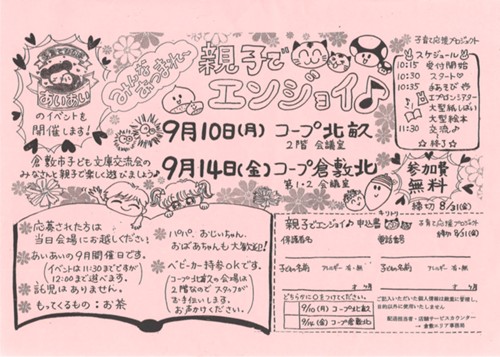 子育て応援プロジェクト
みんなあつまれ〜
親子で
エンジョイ♪
あいあい
のイベントを
開催します!
スケジュール
10:15 受付開始
10:30 スタート♡
10:35 手あそび や
エプロンシアター
大型紙しばい
大型絵本
11:30 交流♪
☆終了☆
9月10日(月) コープ北畝
2階 会議室
9月14日(金) コープ倉敷北
第1・2 会議室
倉敷市子ども文庫交流会の
みなさんと親子で楽しく遊びましょう♪
参加費
無料
締切 8/31(金)
応募された方は
当日会場にお越しください!
あいあいの9月開催日です。
(イベントは11:30までですが
12:00まで遊べます。)
託児はありません。
もってくるもの:お茶
パパ、おじいちゃん、
おばあちゃんも大歓迎!
ベビーカー持参okです。
(コープ北畝の会場は
2階なのでスタッフが
お手伝いします。
お声かけください。)
キリトリ
親子でエンジョイ♪申込書
子育て応援プロジェクト
締切 8/31(金)
保護者名
電話番号
子どもの名前 アレルギー 有・無
才 ヶ月
子どもの名前 アレルギー 有・無
才 ヶ月
どちらかに○をつけてください。
9/10(月) コープ北畝
9/14(金) コープ倉敷北
ご記入いただいた個人情報は厳重に管理し、
目的以外に使用いたしません。
配送担当者・店舗サービスカウンター
→ 倉敷エリア事務局